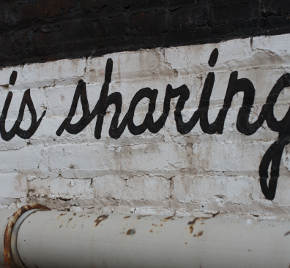 is sharing